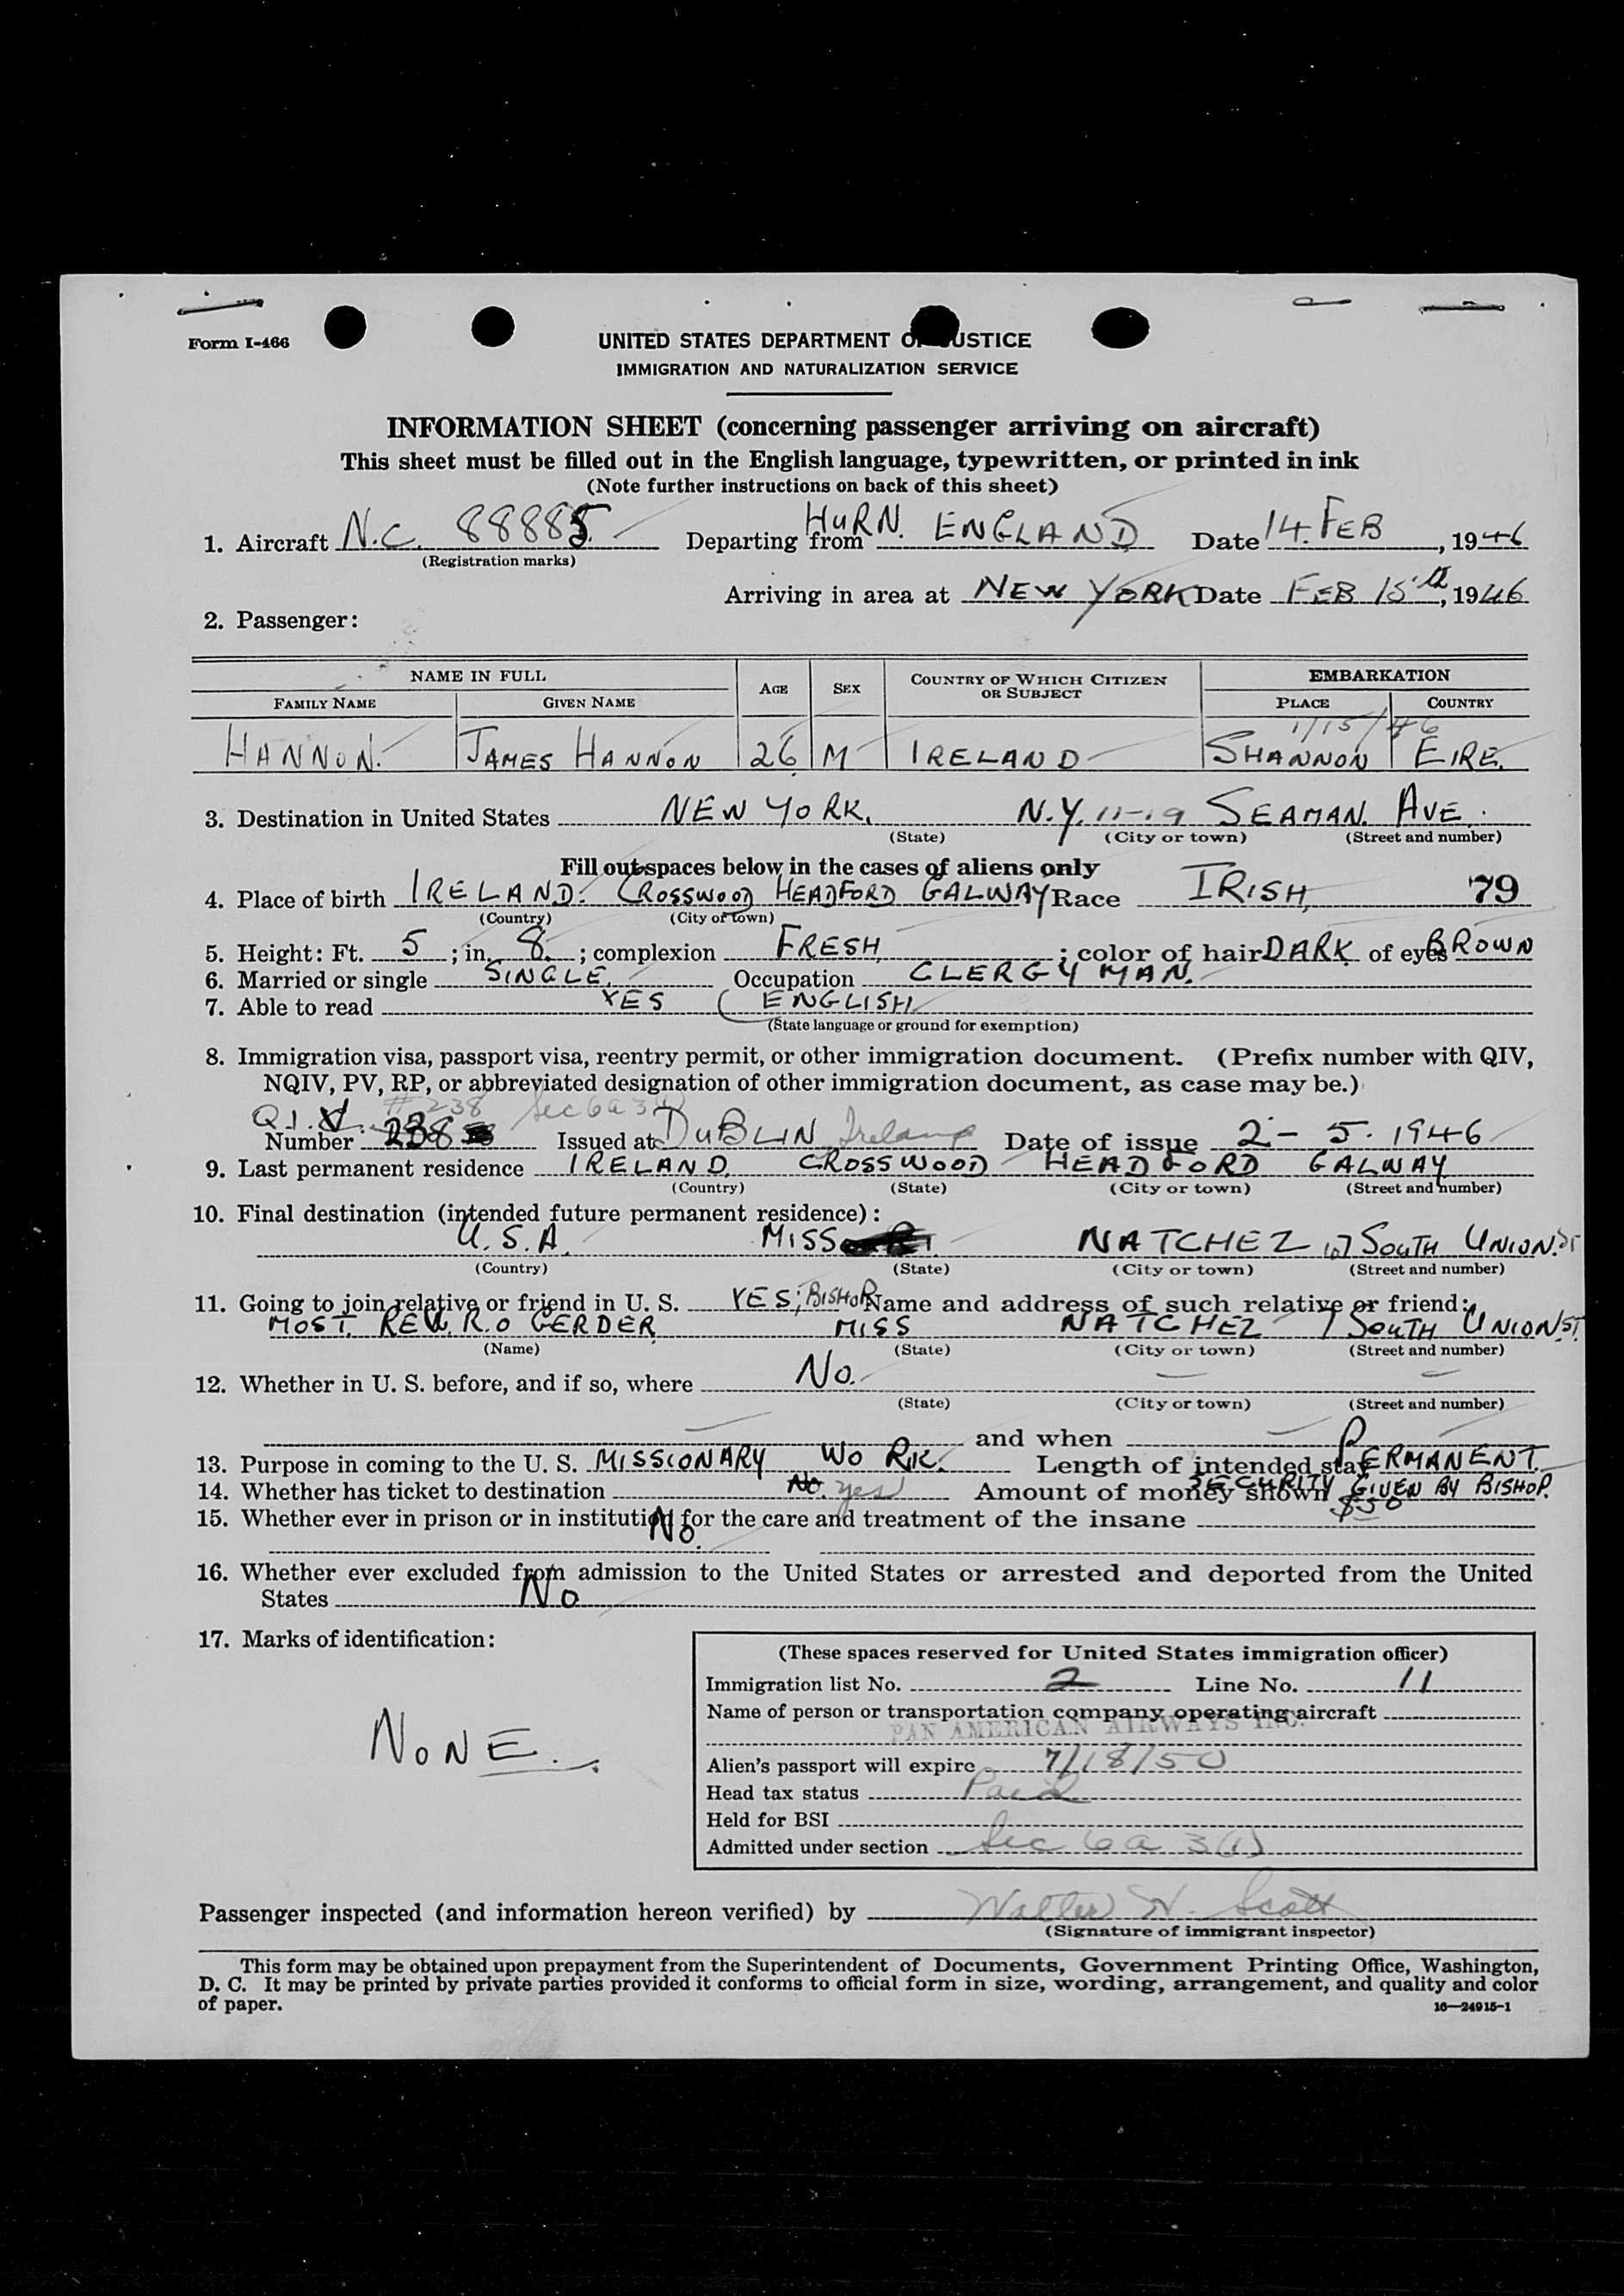 Form I-466
UNITED STATES DEPARTMENT OF JUSTICE
IMMIGRATION AND NATURALIZATION SERVICE
INFORMATION SHEET (concerning passenger arriving on aircraft)
This sheet must be filled out in the English language, typewritten, or printed in ink
(Note further instructions on back of this sheet)
1. Aircraft N.C. 88885. Departing from HURN. ENGLAND Date 14. FEB, 1946
(Registration marks)
Arriving in area at NEW YORK Date FEB 15th, 1946
2. Passenger:
NAME IN FULL AGE SEX COUNTRY OF WHICH CITIZEN OR SUBJECT EMBARKATION
FAMILY NAME GIVEN NAME PLACE COUNTRY
1/15/46
HANNON. JAMES HANNON 26 M IRELAND SHANNON EIRE.
3. Destination in United States NEW YORK. N.Y. 11-19 SEAMAN. AVE.
(State) (City or town) (Street and number)
Fill out spaces below in the cases of aliens only
4. Place of birth IRELAND. CROSSWOOD HEADFORD GALWAY Race IRISH, 79
(Country) (City or town)
5. Height: Ft. 5; in. 8.; complexion FRESH; color of hair DARK of eyes BROWN
6. Married or single SINGLE. Occupation CLERGYMAN.
7. Able to read YES (ENGLISH
(State language or ground for exemption)
8. Immigration visa, passport visa, reentry permit, or other immigration document. (Prefix number with QIV,
NQIV, PV, RP, or abbreviated designation of other immigration document, as case may be.)
Q.I.V. #238 Sec 6a3(1)
Number 238 Issued at DUBLIN Ireland Date of issue 2 - 5. 1946
9. Last permanent residence IRELAND. CROSSWOOD HEADFORD GALWAY
(Country) (State) (City or town) (Street and number)
10. Final destination (intended future permanent residence):
U.S.A. MISS NATCHEZ 107 SOUTH UNION. ST
(Country) (State) (City or town) (Street and number)
11. Going to join relative or friend in U. S. YES; BISHOP Name and address of such relative or friend:
MOST. REV. R.O GERDER MISS NATCHEZ 7 SOUTH UNION ST.
(Name) (State) (City or town) (Street and number)
12. Whether in U. S. before, and if so, where No.
(State) (City or town) (Street and number)
and when
13. Purpose in coming to the U. S. MISSIONARY WORK. Length of intended stay PERMANENT.
14. Whether has ticket to destination No. yes Amount of money shown SECURITY GIVEN BY BISHOP.
$50
15. Whether ever in prison or in institution for the care and treatment of the insane
No.
16. Whether ever excluded from admission to the United States or arrested and deported from the United
States No
17. Marks of identification:
NONE.
(These spaces reserved for United States immigration officer)
Immigration list No. 2 Line No. 11
Name of person or transportation company operating aircraft
PAN AMERICAN AIRWAYS INC.
Alien's passport will expire 7/18/50
Head tax status Paid
Held for BSI
Admitted under section Sec 6a 3(1)
Passenger inspected (and information hereon verified) by Walter N. Scott
(Signature of immigrant inspector)
This form may be obtained upon prepayment from the Superintendent of Documents, Government Printing Office, Washington,
D. C. It may be printed by private parties provided it conforms to official form in size, wording, arrangement, and quality and color
of paper.
16—24915-1